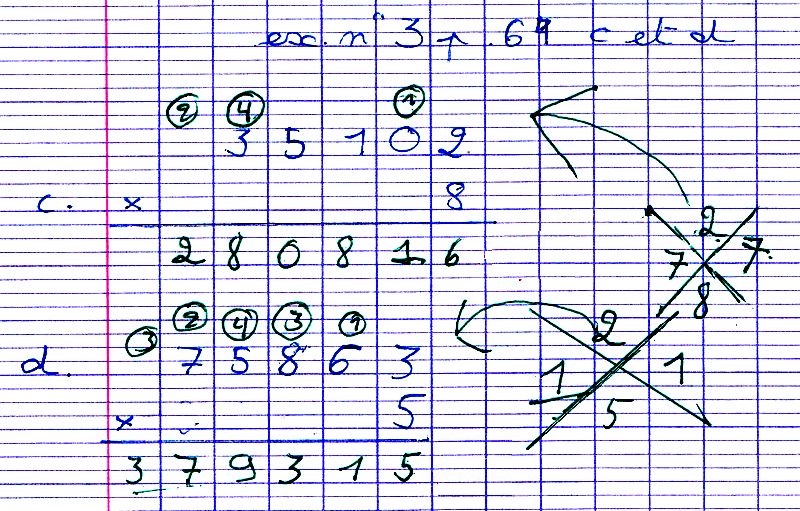 ex. n° 3 p. 67 c et d
2 4 1
3 5 1 0 2
c. x 8
2 8 0 8 1 6
2
7 7
8
3 2 4 3 1
d. 7 5 8 6 3
x 5
3 7 9 3 1 5
2
1 1
5